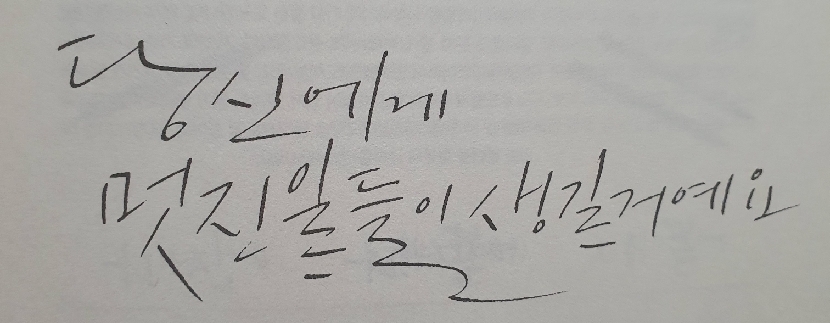 당신에게
멋진일들이 생길거예요